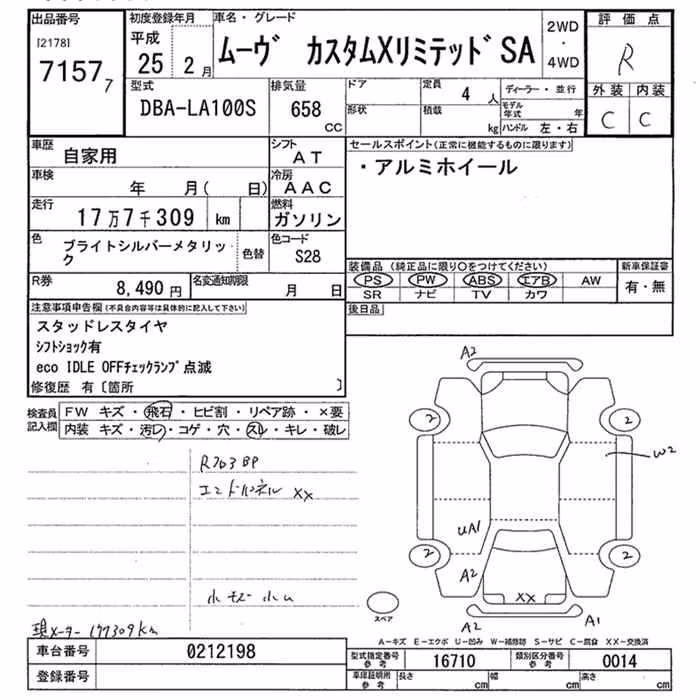 出品番号
[2178]
7157 7
初度登録年月
平成
25 2 月
車名・グレード
ムーヴ カスタムXリミテッド SA
2WD
・
4WD
評価点
R
外装 内装
C C
型式
DBA-LA100S
排気量
658
CC
ドア
形状
定員
4 人
積載
kg
ディーラー・並行
モデル年式 年
ハンドル 左・右
車歴
自家用
シフト
AT
車検
年 月( 日)
冷房
AAC
走行
17万7千309 km
燃料
ガソリン
色
ブライトシルバーメタリック
色替
色コード
S28
R券
8,490 円
名変通知期限
月 日
セールスポイント(正常に機能するものに限ります)
・アルミホイール
装備品 (純正品に限り○をつけてください)
新車保証書
PS PW ABS エアB AW
SR ナビ TV カワ
有・無
後日品
注意事項申告欄(不具合内容等は具体的に記入して下さい)
スタッドレスタイヤ
シフトショック有
eco IDLE OFFチェックランプ点滅
修復歴 有〔箇所 〕
検査員記入欄
FW キズ・飛石・ヒビ割・リペア跡・×要
内装 キズ・汚レ・コゲ・穴・スレ・キレ・破レ
エンドパネル XX
現メーター 177309km
A2
2 2
W2
UA1
2 2
A2
XX
A2 A1
スペア
A―キズ E―エクボ U―凹み W―補修跡 S―サビ C―腐食 XX―交換済
車台番号
0212198
登録番号
型式指定番号
参考
16710
類別区分番号
参考
0014
車庫証明所
参考
長さ cm
幅 cm
高さ cm